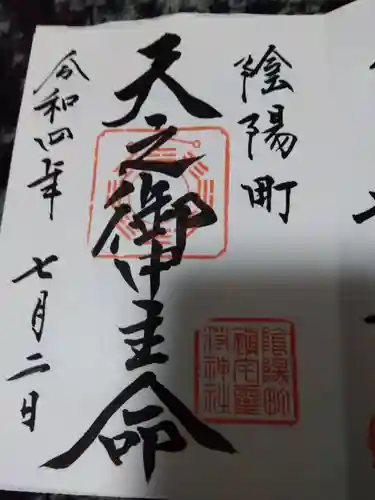 陰陽町
天之御中主命
令和四年
七月二日
陰陽町
鎮宅霊
符神社